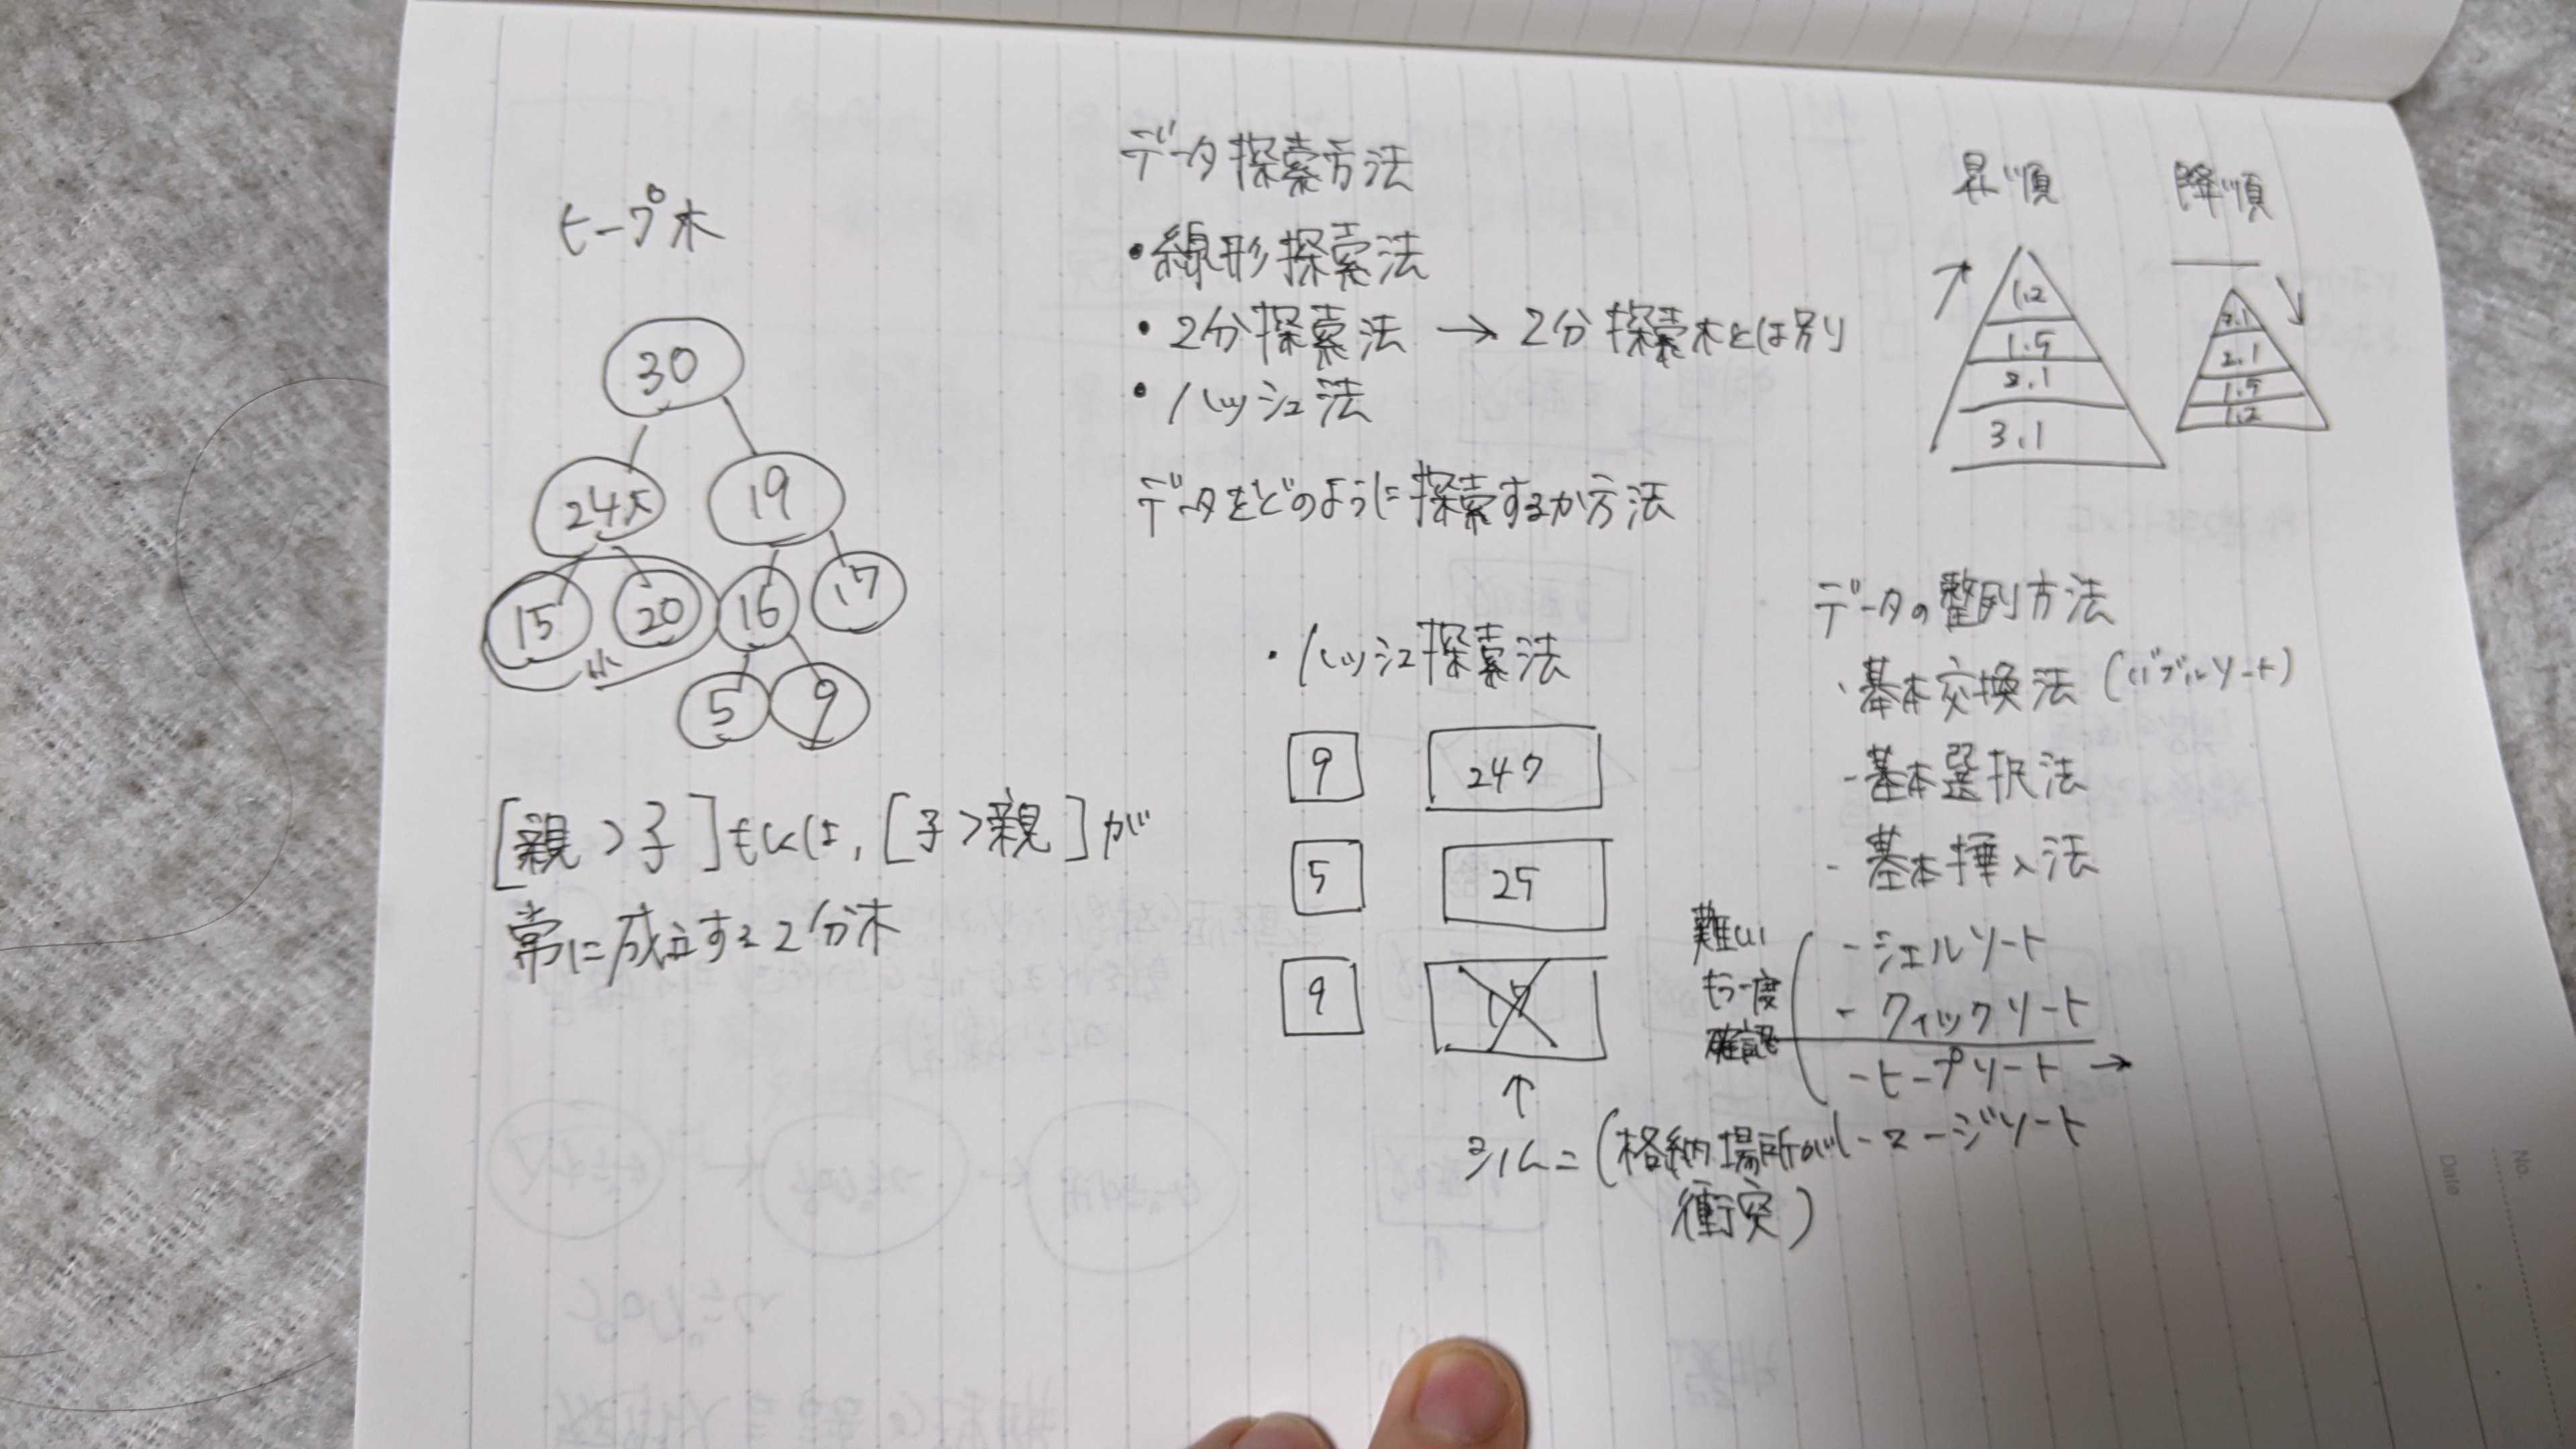 ヒープ木
30
24大
19
15
20
16
17
小
5
9
[親>子]もしくは,[子>親]が
常に成立する2分木
データ探索方法
・線形探索法
・2分探索法 → 2分探索木とは別
・ハッシュ法
データをどのように探索するか方法
・ハッシュ探索法
9 247
5 25
9
↑
シノム=(格納場所が
衝突)
昇順
1.2
1.5
2.1
3.1
降順
3.1
2.1
1.5
1.2
データの整列方法
・基本交換法(バブルソート)
-基本選択法
-基本挿入法
難しい
もう一度
確認
-シェルソート
-クイックソート
-ヒープソート →
-マージソート
No.
Date